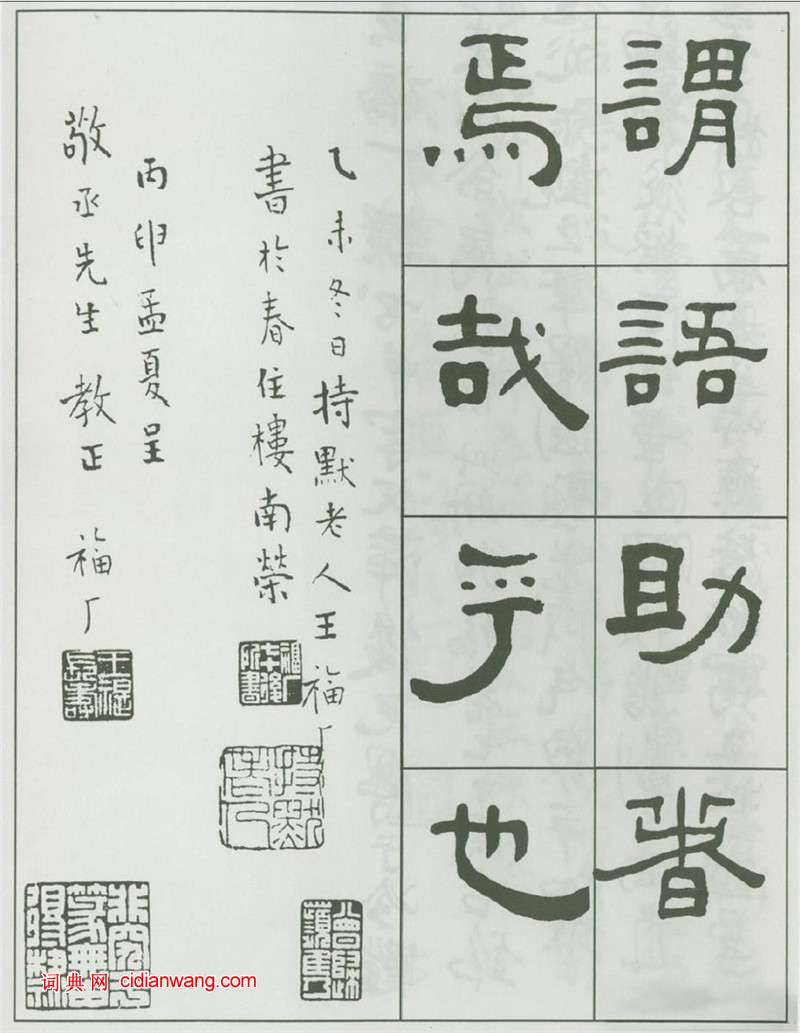 謂語助者
焉哉乎也
乙未冬日持默老人王福厂
書於春住樓南榮
丙申孟夏呈
敬丞先生教正 福厂
持默老人
词典网 cidianwang.com